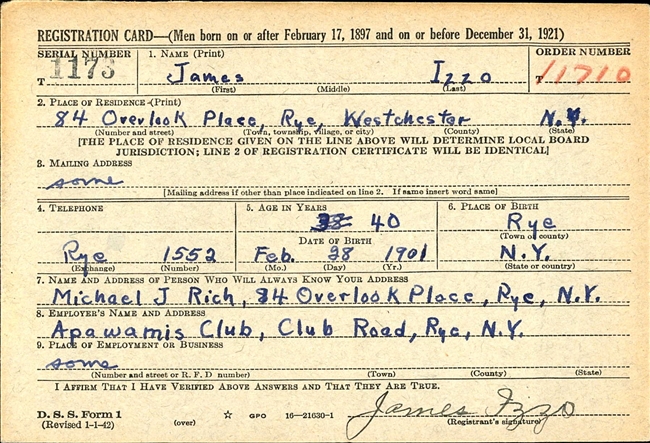 REGISTRATION CARD—(Men born on or after February 17, 1897 and on or before December 31, 1921)
SERIAL NUMBER 1. NAME (Print) ORDER NUMBER
T 1173 James Izzo T 11710
(First) (Middle) (Last)
2. PLACE OF RESIDENCE (Print)
84 Overlook Place, Rye, Westchester N.Y.
(Number and street) (Town, township, village, or city) (County) (State)
[THE PLACE OF RESIDENCE GIVEN ON THE LINE ABOVE WILL DETERMINE LOCAL BOARD
JURISDICTION; LINE 2 OF REGISTRATION CERTIFICATE WILL BE IDENTICAL]
3. MAILING ADDRESS
same
[Mailing address if other than place indicated on line 2. If same insert word same]
4. TELEPHONE 5. AGE IN YEARS 6. PLACE OF BIRTH
38 40 Rye
(Town or county)
DATE OF BIRTH
Rye 1552 Feb. 28 1901 N.Y.
(Exchange) (Number) (Mo.) (Day) (Yr.) (State or country)
7. NAME AND ADDRESS OF PERSON WHO WILL ALWAYS KNOW YOUR ADDRESS
Michael J Rich, 84 Overlook Place, Rye, N.Y.
8. EMPLOYER'S NAME AND ADDRESS
Apawamis Club, Club Road, Rye, N.Y.
9. PLACE OF EMPLOYMENT OR BUSINESS
same
(Number and street or R. F. D number) (Town) (County) (State)
I AFFIRM THAT I HAVE VERIFIED ABOVE ANSWERS AND THAT THEY ARE TRUE.
D. S. S. Form 1
(Revised 1-1-42) (over) ☆ GPO 16—21630-1 James Izzo
(Registrant's signature)